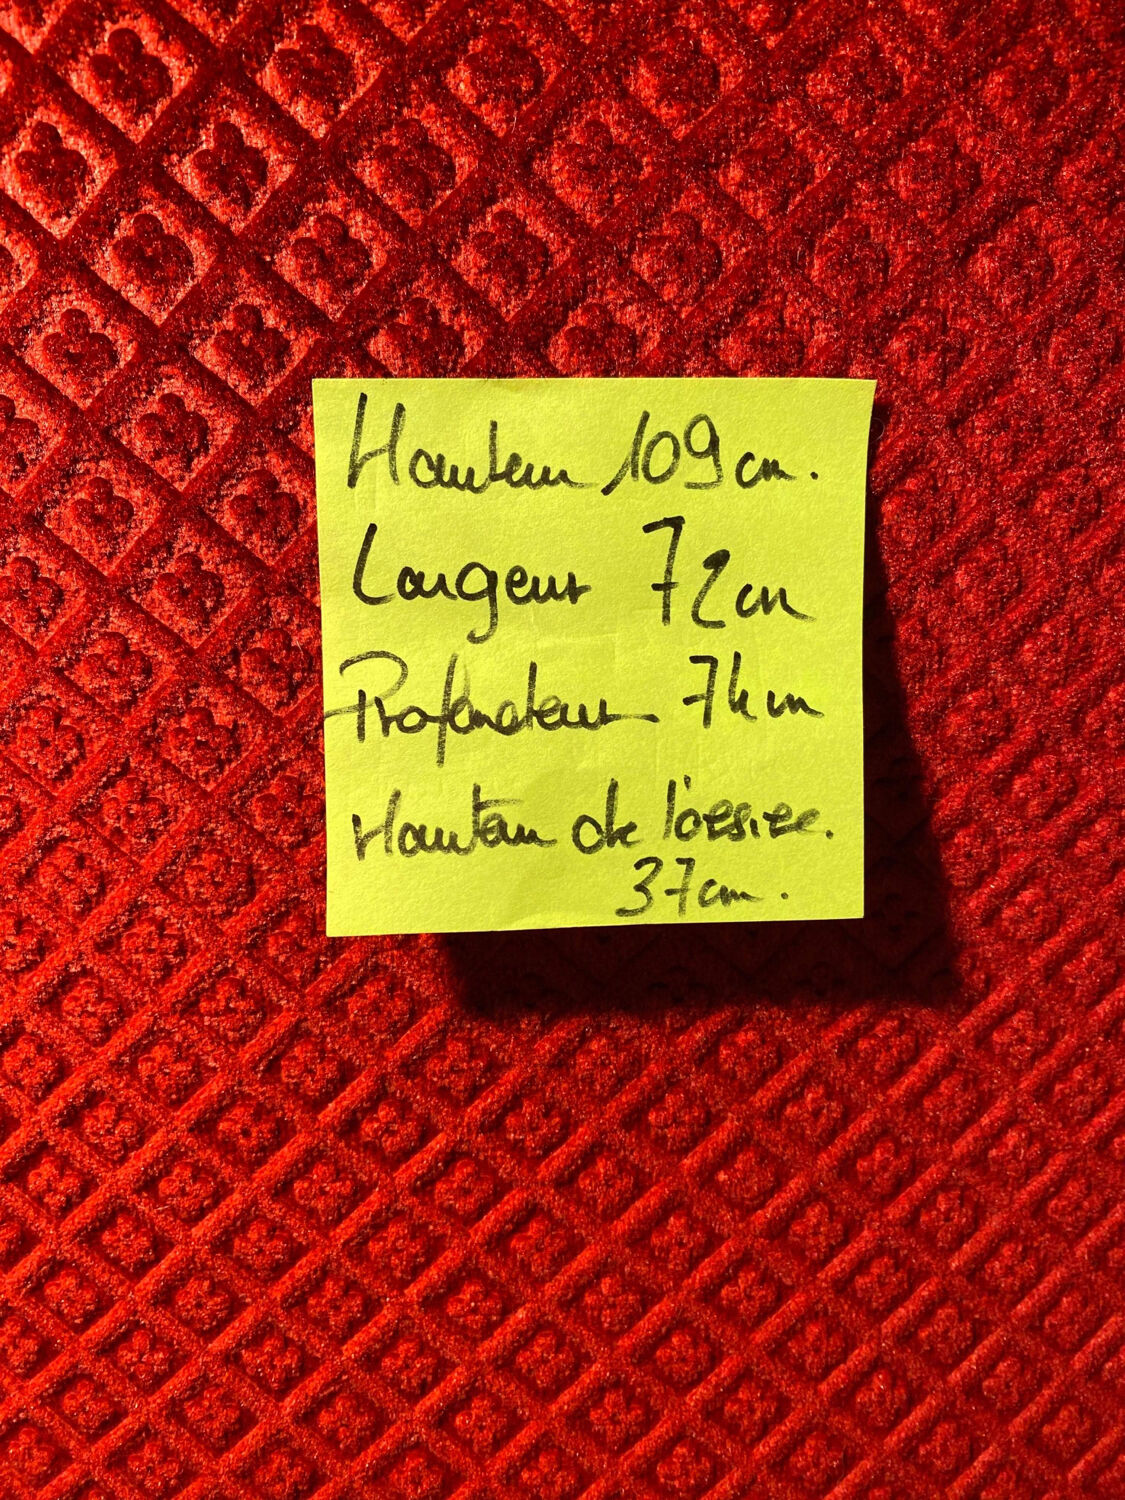 Hauteur 109 cm.
Largeur 72 cm
Profondeur 74 cm
Hauteur de l'assise.
37 cm.